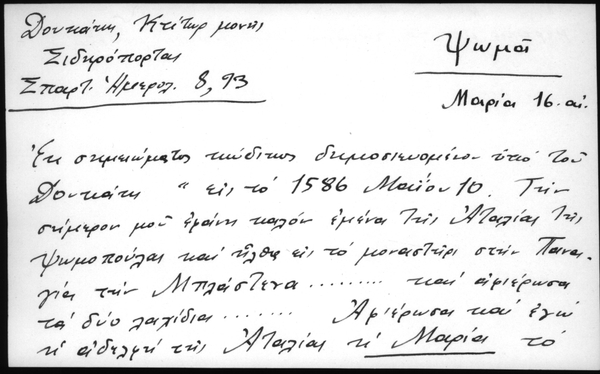 Δουκάκη, Κτίτωρ μονῆς
Σιδηρόπορτας
Σπαρτ. Ἡμερολ. 8, 93
Ψωμᾶ
Μαρία 16 αἰ.
Ἐκ σημειώματος κώδικος δημοσιευομένου ὑπό τοῦ
Δουκάκη " εἰς τό 1586 Μαΐου 10. Τήν
σήμερον μοῦ ἐφάνη καλόν ἐμένα τῆς Ἀταλίας τῆς
Ψωμοπούλας καί ἦλθα εἰς τό μοναστήρι στήν Πανα-
γία τήν Μπλάστενα ......... καί ἀφιέρωσα
τά δύο λαχίδια ........ Ἀφιέρωσα καί ἐγώ
ἡ ἀδελφή τῆς Ἀταλίας ἡ Μαρία τό